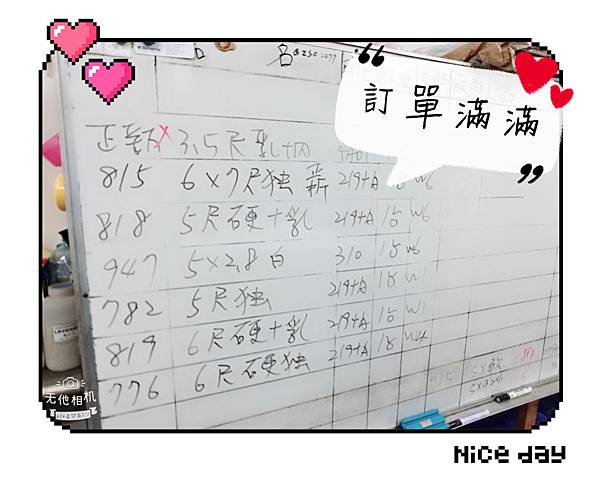 NICE DAY
訂單滿滿
名
815 6×7尺独 219+A 18 W6
818 5尺硬+乳 219+A 18 W6
947 5×2.8白 310 18 W6
782 5尺独 219+A 18 W1
819 6尺硬+乳 219+A 18 W1
776 6尺硬独 219+A 18 W4
无他相机
NiCe day